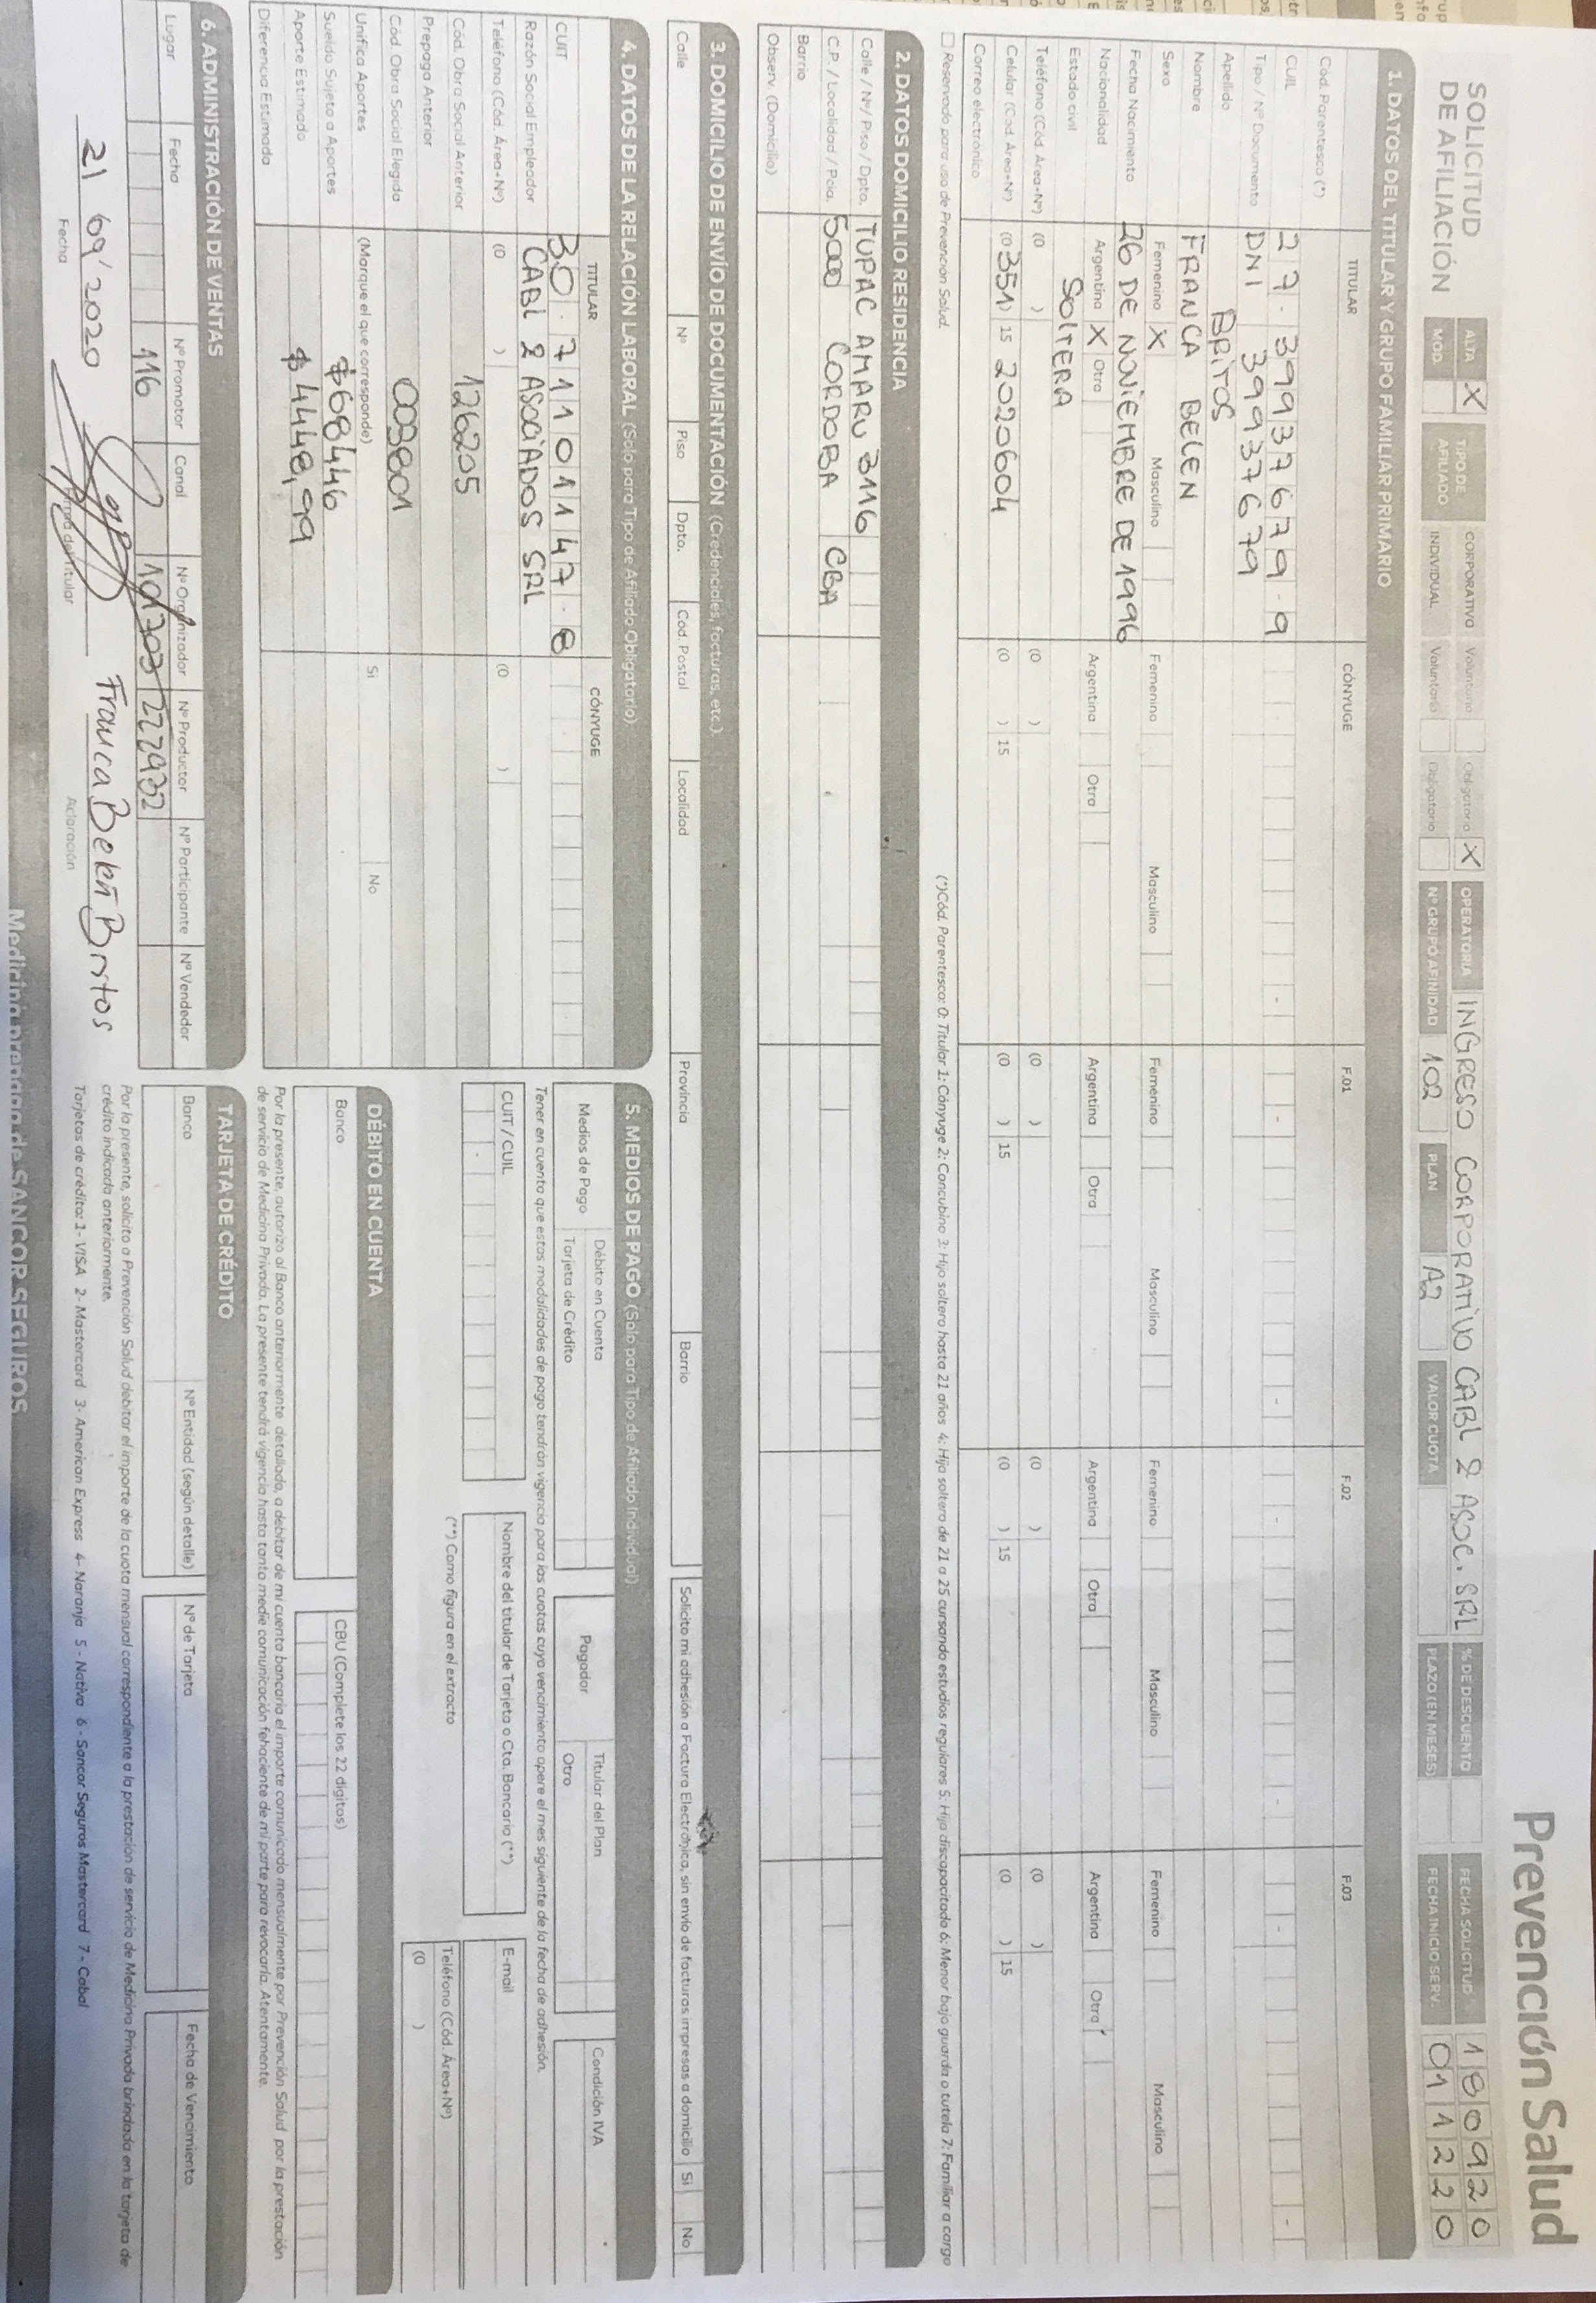 SOLICITUD
DE AFILIACIÓN
Prevención Salud
ALTA X TIPO DE AFILIADO CORPORATIVO Voluntario Obligatorio X OPERATORIA INGRESO CORPORATIVO CABL & ASOC. SRL % DE DESCUENTO FECHA SOLICITUD 180920
MOD. INDIVIDUAL Voluntario Obligatorio Nº GRUPO AFINIDAD 102 PLAN A2 VALOR CUOTA PLAZO (EN MESES) FECHA INICIO SERV. 011220
1. DATOS DEL TITULAR Y GRUPO FAMILIAR PRIMARIO
TITULAR CÓNYUGE F.01 F.02 F.03
Cód. Parentesco (*)
CUIL 27-39937679-9
Tipo / Nº Documento DNI 39937679
Apellido BRITOS
Nombre FRANCA BELEN
Sexo Femenino X Masculino Femenino Masculino Femenino Masculino Femenino Masculino Femenino Masculino
Fecha Nacimiento 26 DE NOVIEMBRE DE 1996
Nacionalidad Argentina X Otra Argentina Otra Argentina Otra Argentina Otra Argentina Otra
Estado civil SOLTERA
Teléfono (Cód. Área+Nº) (0 ) (0 ) (0 ) (0 ) (0 )
Celular (Cod. Área+Nº) (0351) 15 2020604 (0 ) 15 (0 ) 15 (0 ) 15 (0 ) 15
Correo electrónico
Reservado para uso de Prevención Salud. (*)Cód. Parentesco: 0: Titular 1: Cónyuge 2: Concubino 3: Hijo soltero hasta 21 años 4: Hijo soltero de 21 a 25 cursando estudios regulares 5: Hijo discapacitado 6: Menor bajo guarda o tutela 7: Familiar a cargo
2. DATOS DOMICILIO RESIDENCIA
Calle / Nº/ Piso / Dpto. TUPAC AMARU 3116
C.P. / Localidad / Pcia. 5000 CORDOBA CBA
Barrio
Observ. (Domicilio)
3. DOMICILIO DE ENVÍO DE DOCUMENTACIÓN (Credenciales, facturas, etc.).
Calle Nº Piso Dpto. Cód. Postal Localidad Provincia Barrio Solicito mi adhesión a Factura Electrónica, sin envío de facturas impresas a domicilio Si No
4. DATOS DE LA RELACIÓN LABORAL (Solo para Tipo de Afiliado Obligatorio).
TITULAR CÓNYUGE
CUIT 30-71101147-8
Razón Social Empleador CABL & ASOCIADOS SRL
Teléfono (Cód. Área+Nº) (0 ) (0 )
Cód. Obra Social Anterior 126205
Prepaga Anterior
Cód. Obra Social Elegida 003801
Unifica Aportes (Marque el que corresponde) Si No
Sueldo Sujeto a Aportes $68446
Aporte Estimado $4448,99
Diferencia Estimada
5. MEDIOS DE PAGO (Solo para Tipo de Afiliado Individual)
Medios de Pago Débito en Cuenta Pagador Titular del Plan Condición IVA
Tarjeta de Crédito Otro
Tener en cuenta que estas modalidades de pago tendrán vigencia para las cuotas cuyo vencimiento opere el mes siguiente de la fecha de adhesión.
CUIT / CUIL Nombre del titular de Tarjeta o Cta. Bancaria (**) E-mail
(**) Como figura en el extracto Teléfono (Cód. Área+Nº)
(0 )
DÉBITO EN CUENTA
Banco CBU (Complete los 22 dígitos)
Por la presente, autorizo al Banco anteriormente detallado, a debitar de mi cuenta bancaria el importe comunicado mensualmente por Prevención Salud por la prestación
de servicio de Medicina Privada. La presente tendrá vigencia hasta tanto medie comunicación fehaciente de mi parte para revocarla. Atentamente.
6. ADMINISTRACIÓN DE VENTAS
Lugar Fecha Nº Promotor Canal Nº Organizador Nº Productor Nº Participante Nº Vendedor
116 101303 222932
21 09'2020 Franca Belén Britos
Fecha Firma del Titular Aclaración
TARJETA DE CRÉDITO
Banco Nº Entidad (según detalle) Nº de Tarjeta Fecha de Vencimiento
Por la presente, solicito a Prevención Salud debitar el importe de la cuota mensual correspondiente a la prestación de servicio de Medicina Privada brindada en la tarjeta de
crédito indicada anteriormente.
Tarjetas de crédito: 1- VISA 2- Mastercard 3- American Express 4- Naranja 5 - Nativa 6 - Sancor Seguros Mastercard 7 - Cabal
Medicina prepaga de SANCOR SEGUROS